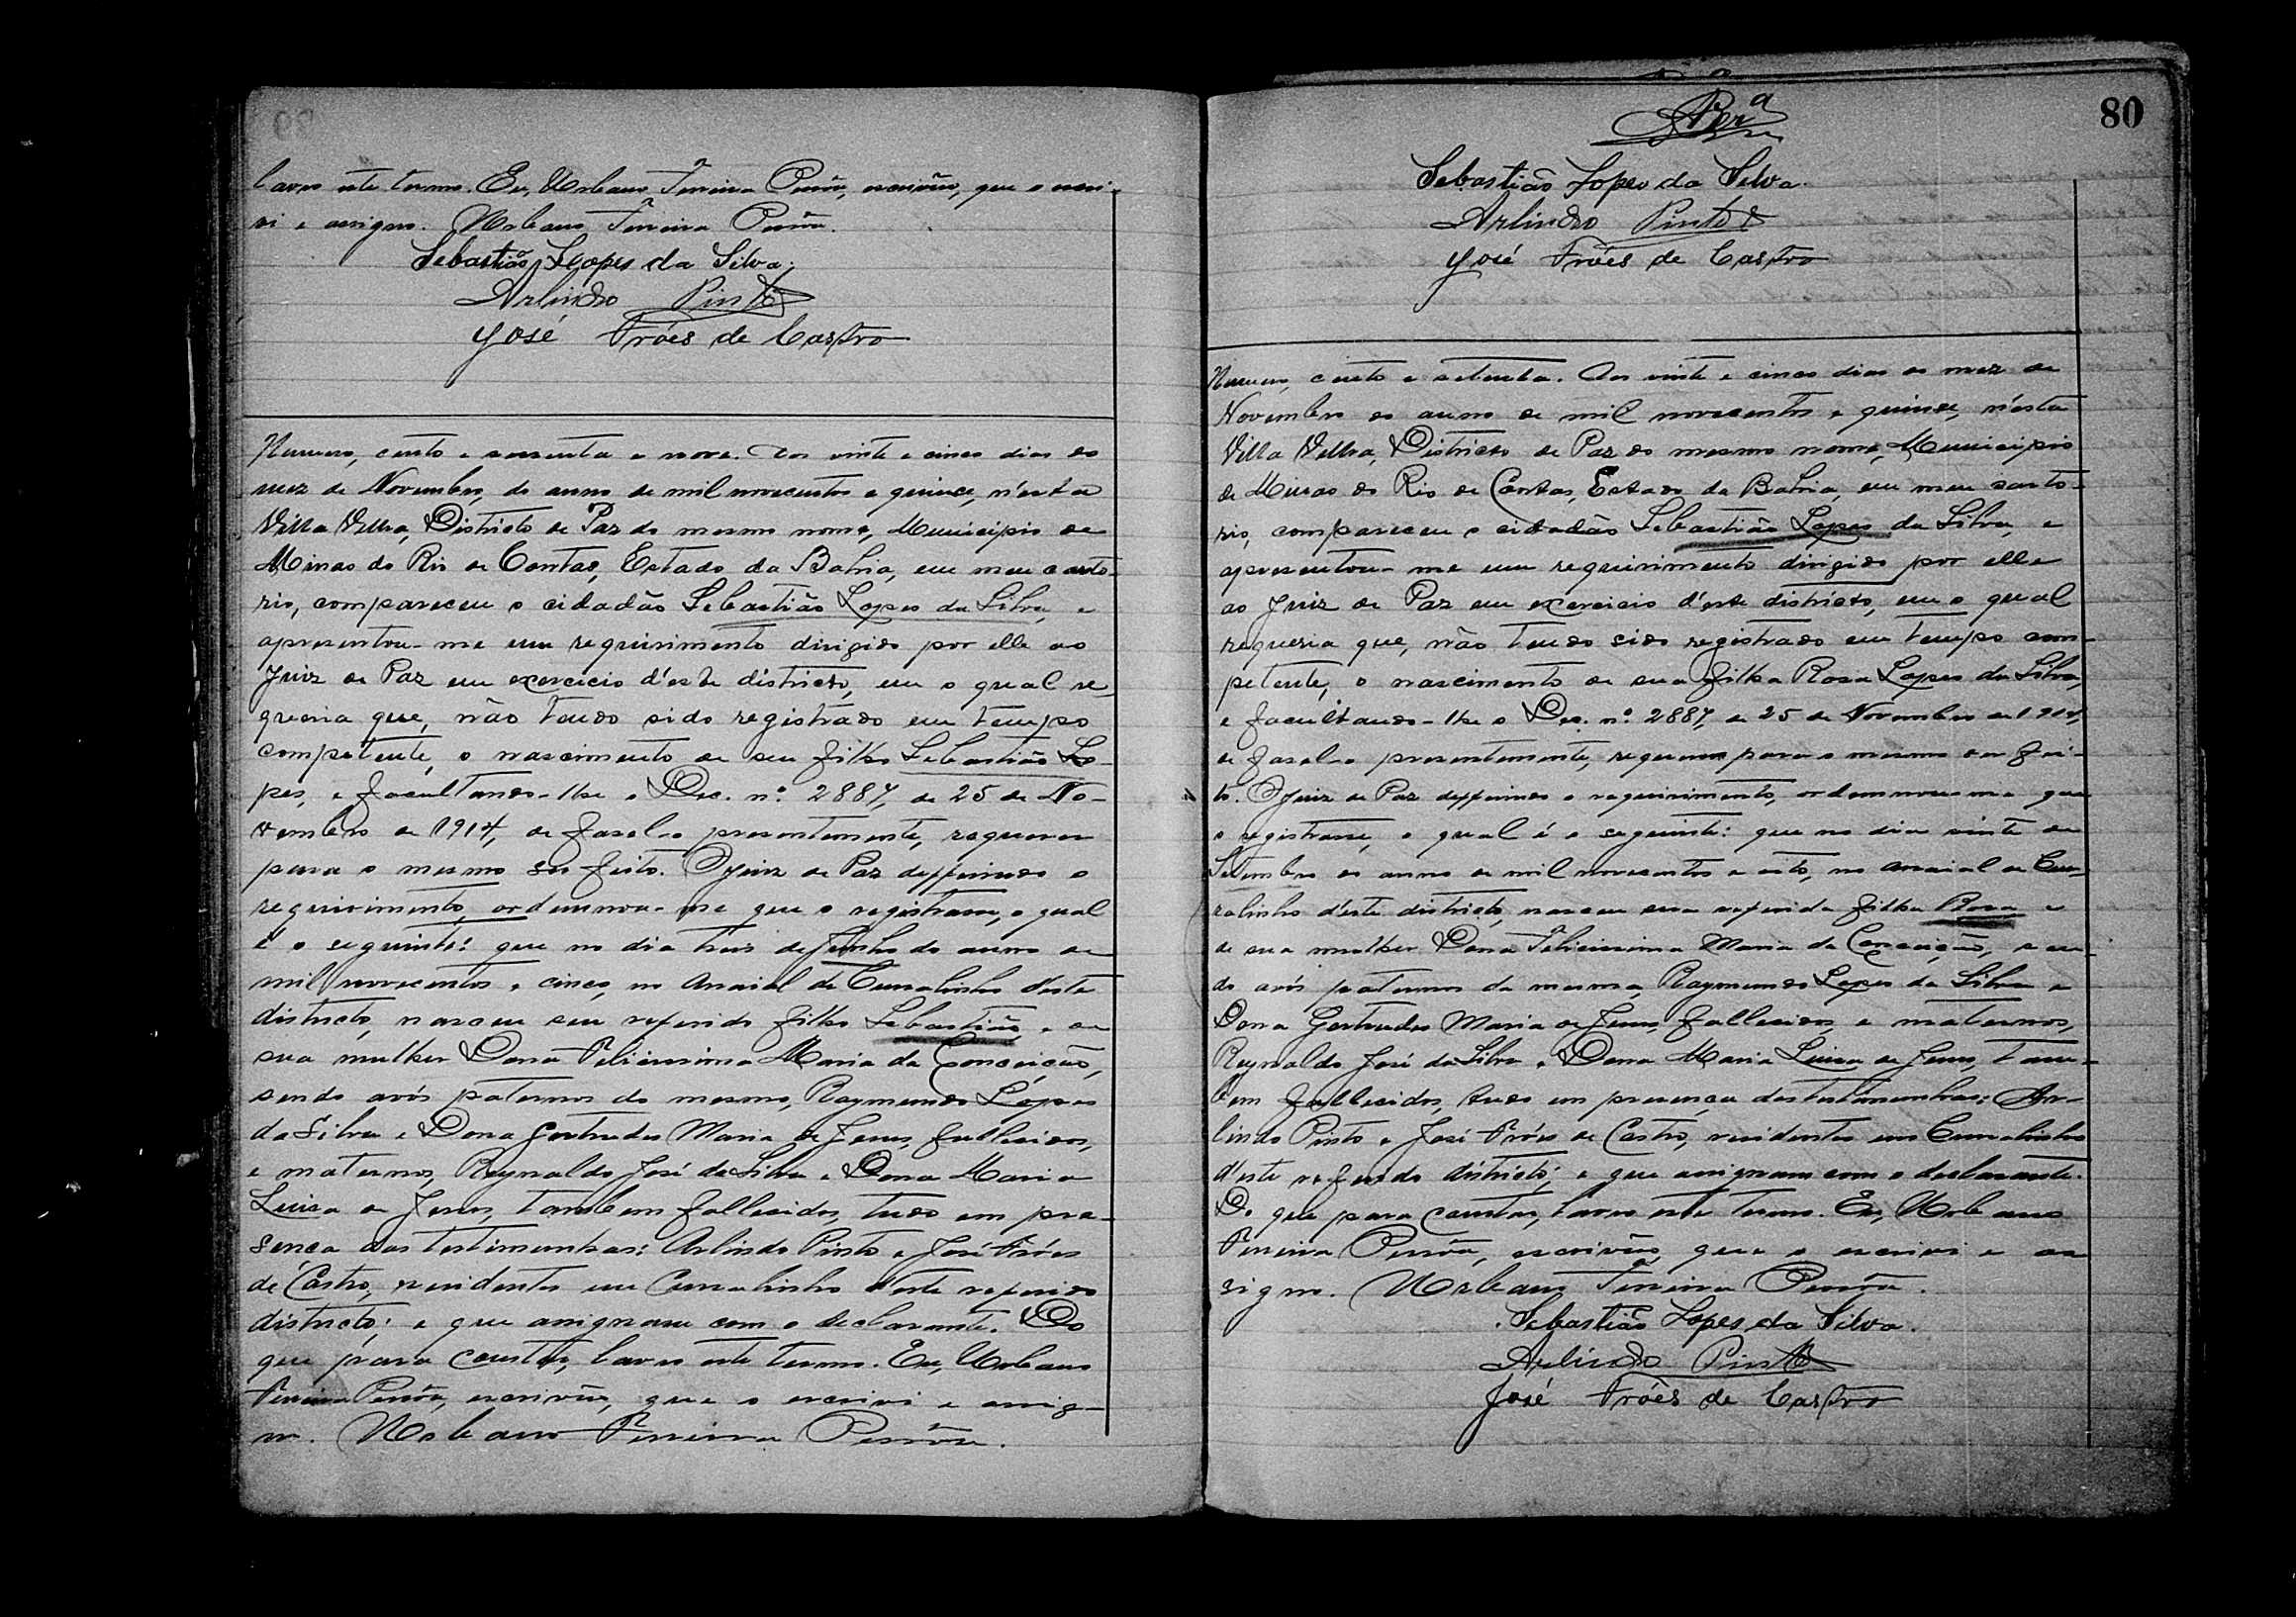 lavro este termo. Eu, Urbano Ferreira Pessôa, escrivão, que o escri-
vi e assigno. Urbano Ferreira Pessôa.
Sebastião Lopes da Silva.
Arlindo Pinto
José Fróes de Castro
Numero, cento e sessenta e nove. Aos vinte e cinco dias do
mez de Novembro, do anno de mil novecentos e quinze, n'esta
Villa Velha, Districto de Paz do mesmo nome, Municipio de
Minas do Rio de Contas, Estado da Bahia, em meu carto-
rio, compareceu o cidadão Sebastião Lopes da Silva, e
apresentou-me um requirimento dirigido por elle ao
Juiz de Paz em exercicio d'este districto, em o qual re-
queria que, não tendo sido registrado em tempo
competente, o nascimento de seu filho Sebastião Lo-
pes, e facultando-lhe o Dec. nº 2887, de 25 de No-
vembro de 1914, de fazel-o presentemente, requeria
para o mesmo ser feito. O Juiz de Paz defferindo o
requirimento, ordennou-me que o registrasse, o qual
é o seguinte: que no dia treis de Junho do anno de
mil novecentos e cinco, no Arraial de Curralinho d'este
districto, nasceu seu referido filho Sebastião, e de
sua mulher Dona Felicissima Maria da Conceição,
sendo avós paternos do mesmo, Raymundo Lopes
da Silva e Dona Gertrudes Maria de Jesus, fallecidos,
e maternos, Reynaldo José da Silva e Dona Maria
Luisa de Jesus, tambem fallecidos, tudo em pre-
sença das testimunhas: Arlindo Pinto e José Fróes
de Castro, residentes em Curralinho d'este referido
districto; e que assignam com o declarante. Do
que para constar, lavro este termo. Eu, Urbano
Ferreira Pessôa, escrivão, que o escrivi e assig-
no. Urbano Ferreira Pessôa.
80
Sebastião Lopes da Silva.
Arlindo Pinto
José Fróes de Castro
Numero, cento e setenta. Aos vinte e cinco dias do mez de
Novembro do anno de mil novecentos e quinze, n'esta
Villa Velha, Districto de Paz do mesmo nome, Municipio
de Minas do Rio de Contas, Estado da Bahia, em meu carto-
rio, compareceu o cidadão Sebastião Lopes da Silva, e
apresentou-me um requirimento dirigido por elle
ao Juiz de Paz em exercicio d'este districto, em o qual
requeria que, não tendo sido registrado em tempo com-
petente, o nascimento de sua filha Rosa Lopes da Silva,
e facultando-lhe o Dec. nº 2887, de 25 de Novembro de 1914,
de fazel-o presentemente, requeria para o mesmo ser fei-
to. O Juiz de Paz defferindo o requirimento, ordennou-me que
o registrasse, o qual é o seguinte: que no dia vinte de
Setembro do anno de mil novecentos e oito, no arraial de Cur-
ralinho d'este districto, nasceu sua referida filha Rosa, e
de sua mulher Dona Felicissima Maria da Conceição, sen-
do avós paternos da mesma, Raymundo Lopes da Silva e
Dona Gertrudes Maria de Jesus, fallecidos, e maternos,
Reynaldo José da Silva e Dona Maria Luisa de Jesus, tam-
bem fallecidos, tudo em presença das testimunhas: Ar-
lindo Pinto e José Fróes de Castro, residentes em Curralinho
d'este referido districto; e que assignam com o declarante.
Do que para constar, lavro este termo. Eu, Urbano
Ferreira Pessôa, escrivão, que o escrivi e as-
signo. Urbano Ferreira Pessôa.
Sebastião Lopes da Silva.
Arlindo Pinto
José Fróes de Castro